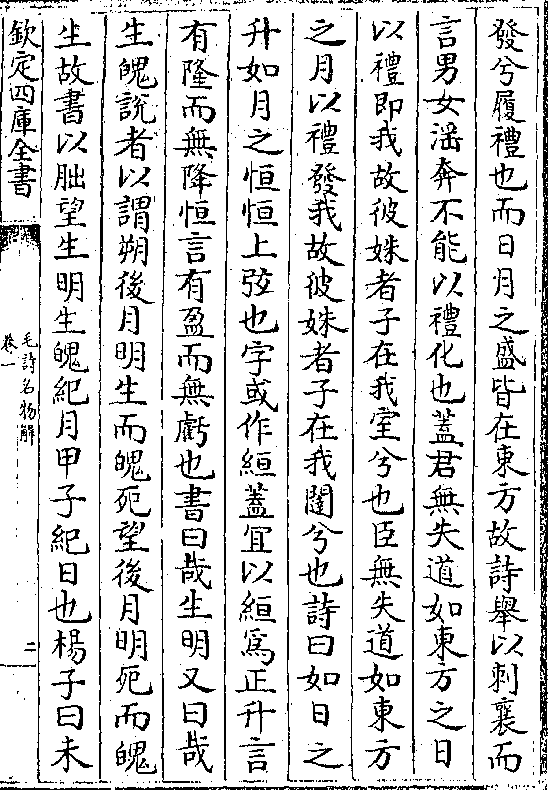 發兮履禮也而日月之盛皆在東方故詩舉以刺襄而
言男女滛奔不能以禮化也蓋君無失道如東方之日
以禮即我故彼姝者子在我室兮也臣無失道如東方
之月以禮發我故彼姝者子在我闥兮也詩曰如日之
升如月之恒恒上弦也字或作絙蓋宜以絙為正升言
有隆而無降恒言有盈而無虧也書曰哉生明又曰哉
生魄說者以謂朔後月明生而魄死望後月明死而魄
生故書以朏望生明生魄紀月甲子紀日也楊子曰未
欽定四庫全書
毛詩名物解
卷一
二